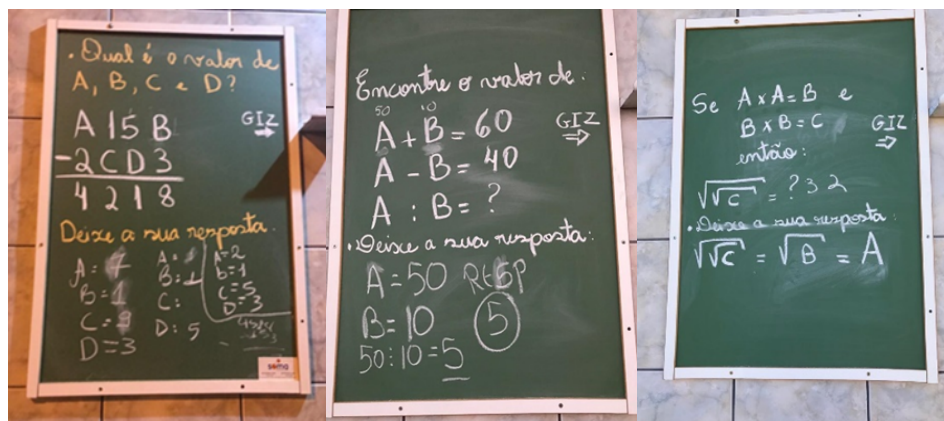 . Qual é o valor de
A, B, C e D?
A 1 5 B
GIZ
- 2 C D 3
4 2 1 8
Deixe a sua resposta.
A = 7
B = 1
C = 9
D = 3
B: 1
C:
D: 5
A = 2
b = 1
C = 5
D = 3
soma
Encontre o valor de:
50 10
A + B = 60
GIZ
A - B = 40
A : B = ?
. Deixe a sua resposta:
A = 50 
B = 10
50 : 10 = 5
5
Se A x A = B e
B x B = C
GIZ
então:
√√C = ? 3 2
. Deixe a sua resposta:
√√C = √B = A